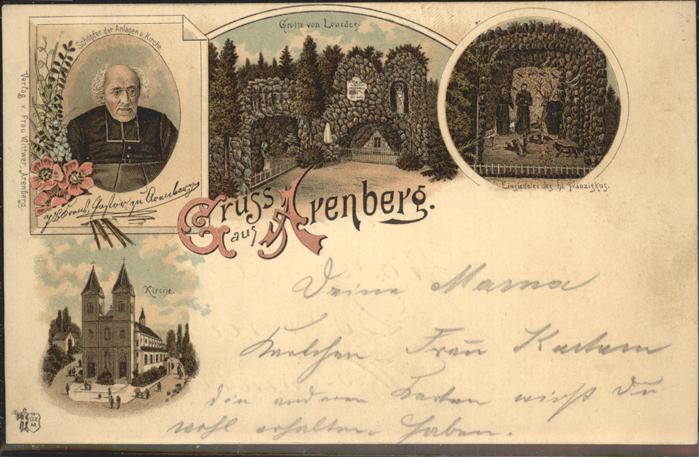 Schöpfer der Anlagen u. Kirche.
Verlag v. Frau Wittwer, Arenberg.
Pastor zu Arenberg
Grotte von Lourdes.
Einsiedelei des hl. Franziskus.
Gruss
aus Arenberg.
Kirche.
Deine Mama
Karlchen Frau
die anderen Karten wirst Du
wohl erhalten haben.